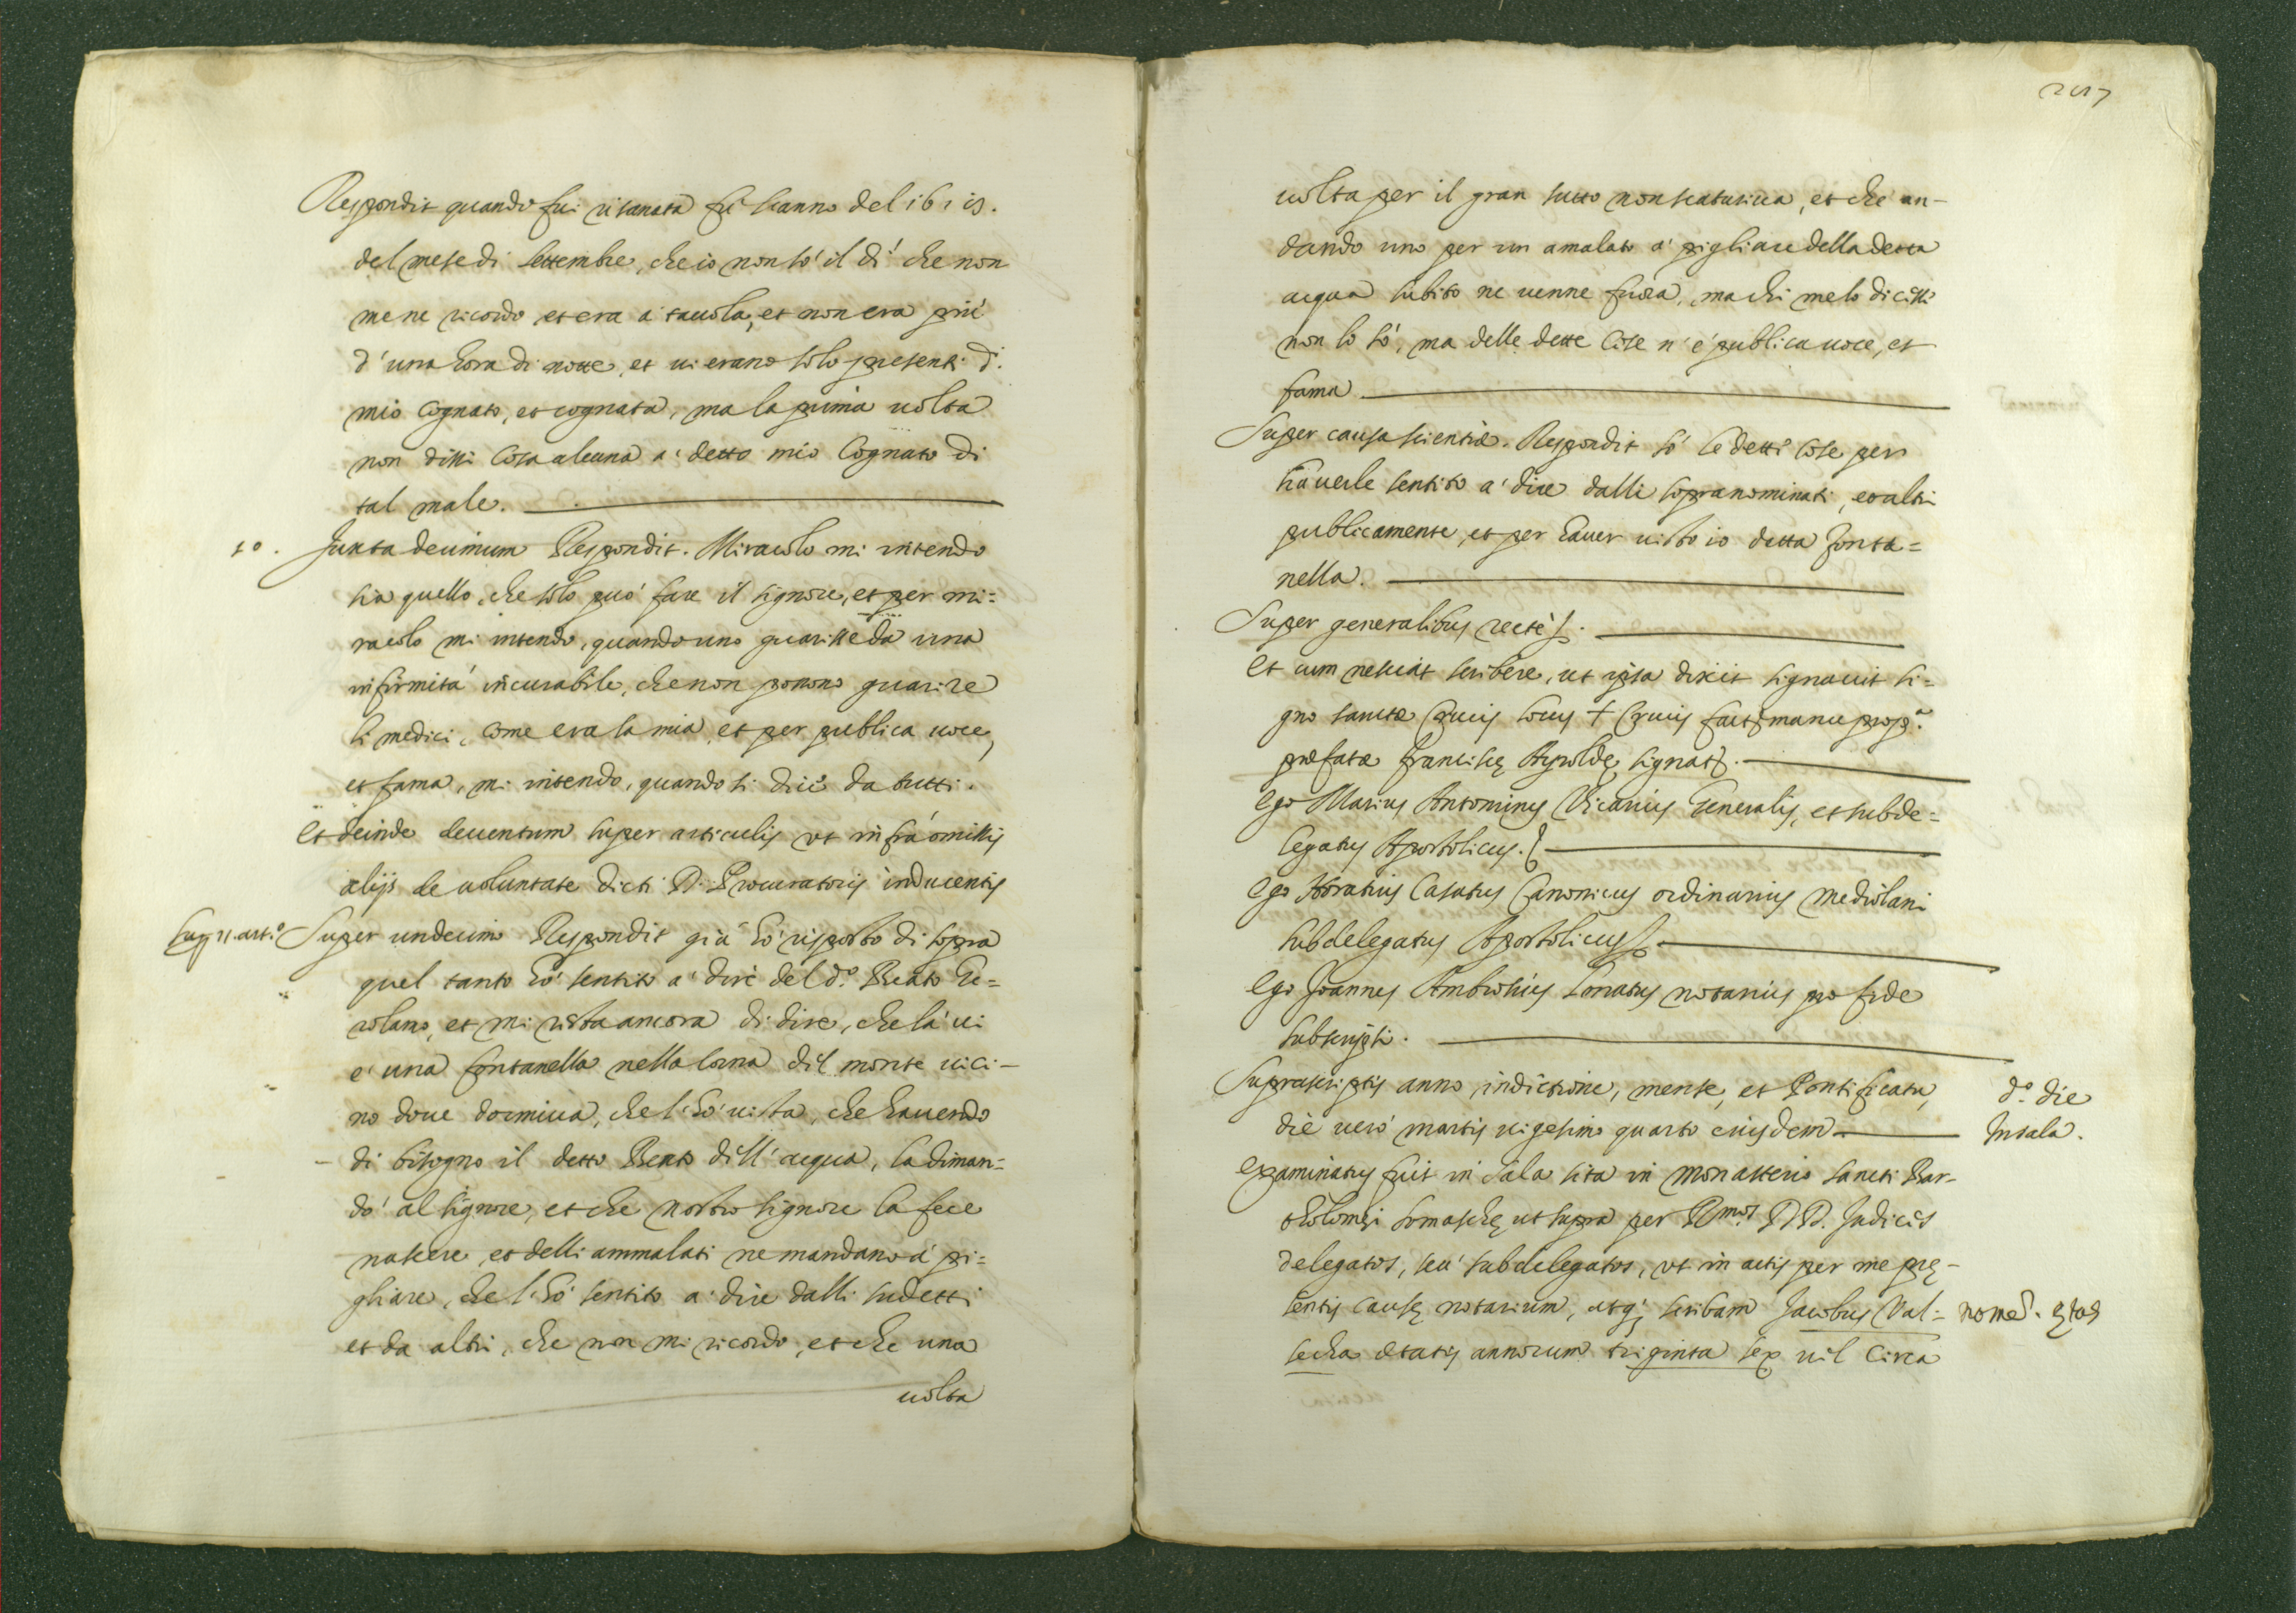 Respondit quando fui risanata fù l'anno del 1619.
del mese di settembre, che io non só il dí che non
me ne ricordo et era à tauola, et non era più
d'una hora di notte, et ui erano solo presenti d.
mio Cognato, et cognata, ma la prima uolta
non dissi Cosa alcuna a' detto mio Cognato di
tal male.
10. Juxta decimum Respondit. Miracolo mi intendo
sia quello, che solo può fare il signore, et per mi=
racolo mi intendo, quando uno guarisse da una
infirmità incurabile, che non ponono guarire
li medici, come era la mia, et per publica uoce,
et fama, mi intendo, quando si dice da tutti.
Et deinde deuentum super articulis ut infra omissis
alijs de uoluntate dicti D. Procuratoris inducentis
Sup. 11. art.o Super undecimo Respondit già hò risposto di sopra
quel tanto hó sentito a' dire del d.o Beato Ge=
rolamo, et mi resta ancora di dire, che là ui
e' una fontanella nella Corna dil monte uici-
no doue dormiua, che l'hó uista, che hauendo
di bisogno il detto Beato dill'acqua, la diman=
dò al signore, et che nostro signore la fece
nascere, et delli ammalati ne mandano à pi=
gliare, che l'hó sentito a' dire dalli sudetti
et da altri, che non mi ricordo, et che una
uolta
uolta per il gran sutto non scaturiua, et che an-
dando uno per un amalato a' pigliare della detta
acqua subito ne uenne fuora, ma chi me lo dicesse
non lo só, ma delle dette Cose n'é publica uoce, et
fama
Super causa scientiæ. Respondit só le dette Cose per
hauerle sentito a' dire dalli sopranominati, et altri
publicamente, et per hauer uisto io detta fonta=
nella.
Super generalibus recte.
Et cum nesciat scribere, ut ipsa dixit signauit si=
gno sanctæ Crucis locus + Crucis fact. manu prop.a
præfatæ Franciscę Ayroldę signat.
Ego Marius Antoninus Vicarius Generalis, et subde=
legatus Apostolicus.
Ego Horatius Casatus Canonicus ordinarius Mediolani
subdelegatus Apostolicus.
Ego Joannes Ambrosius Lonatus notarius pro fide
subscripsi.
Suprascriptis anno, indictione, mense, et Pontificatu, d.o die
die uerò martis uigesimo quarto eiusdem In sala.
Examinatus fuit in Sala sita in Monasterio Sancti Bar-
tholomęi Somaschę ut supra per R.mos D.D. Judices
delegatos, seù subdelegatos, ut in actis per me prę-
sentis causę notarium, atq; scribam Jacobus Val= nome. ętas
secha ætatis annorum triginta sex uel Circa